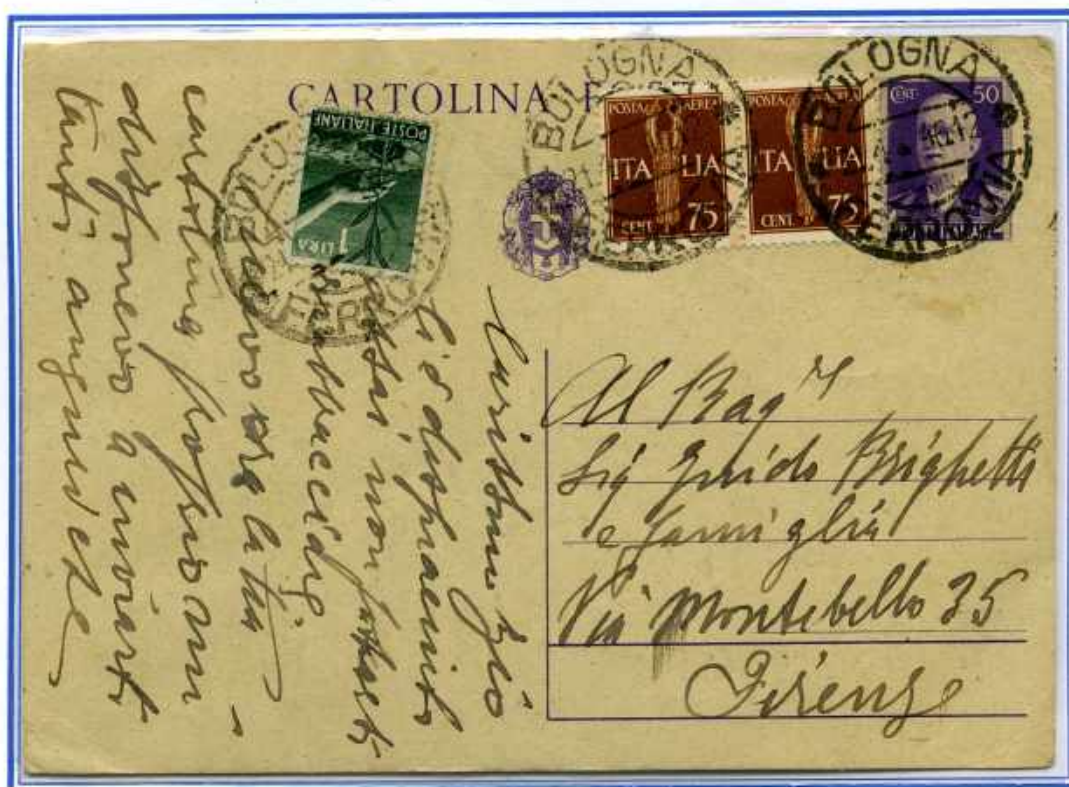 CARTOLINA
BOLOGNA
FERROVIA
BOLOGNA
FERROVIA
POSTA AEREA
ITALIA
CENT. 75
POSTA AEREA
ITALIA
CENT. 75
CENT 50
POSTE ITALIANE
1 LIRA
Al Rag
Sig Guido Brighetti
e famiglia
Via Montebello 35
Firenze
Carissimo Zio
Ci è dispiaciuto
assai non
ora la tua
cartolina proprio
a inviarti
tanti auguri